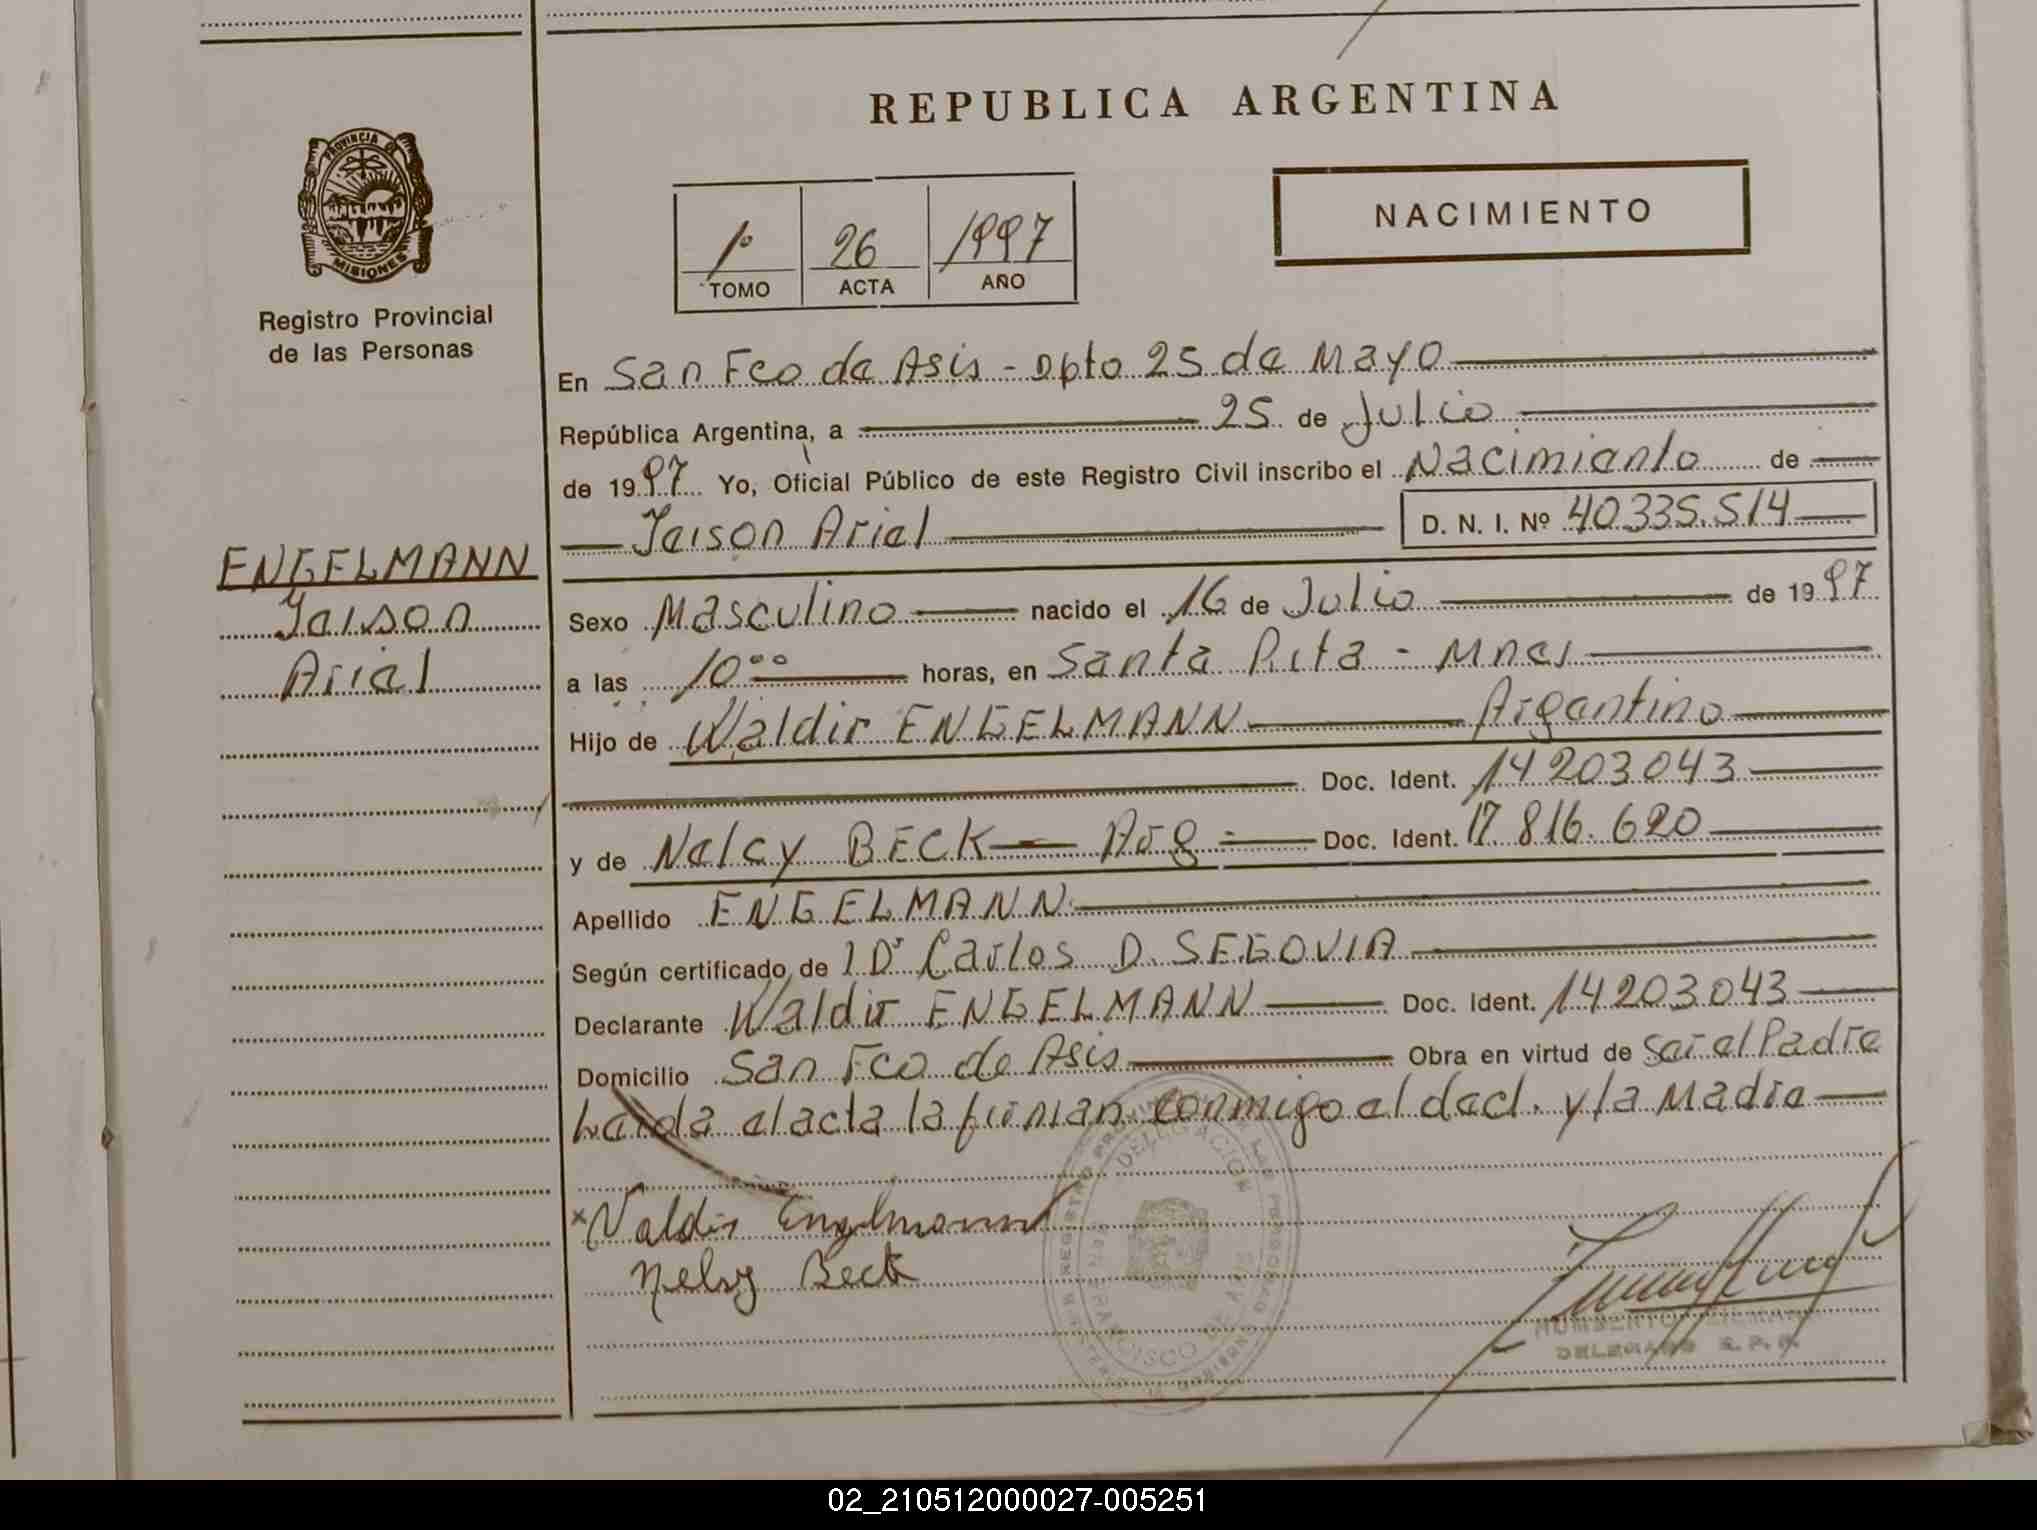 REPUBLICA ARGENTINA
PROVINCIA DE
MISIONES
Registro Provincial
de las Personas
1º 26 1997
TOMO ACTA AÑO
NACIMIENTO
En San Fco de Asis - Dpto 25 de Mayo
República Argentina, a 25 de Julio
de 1997 Yo, Oficial Público de este Registro Civil inscribo el Nacimiento de
Jaison Ariel D. N. I. Nº 40.335.514
ENGELMANN
Jaison
Ariel
Sexo Masculino nacido el 16 de Julio de 1997
a las 10ºº horas, en Santa Rita - Mnes
Hijo de Waldir ENGELMANN Argentino
Doc. Ident. 14203043
y de Nelcy BECK Arg = Doc. Ident. 17.816.620
Apellido ENGELMANN
Según certificado de 1 Dr Carlos D. SEGOVIA
Declarante Waldir ENGELMANN Doc. Ident. 14203043
Domicilio San Fco de Asis Obra en virtud de Ser el Padre
Leida el acta la firman conmigo el decl. y la Madre
x Valdir Engelmann
Nelsy Beck
DELEGACION
SAN FRANCISCO DE ASIS
REGISTRO PROVINCIAL DE LAS PERSONAS
HUMBERTO
DELEGADO R. P. P.
02_210512000027-005251